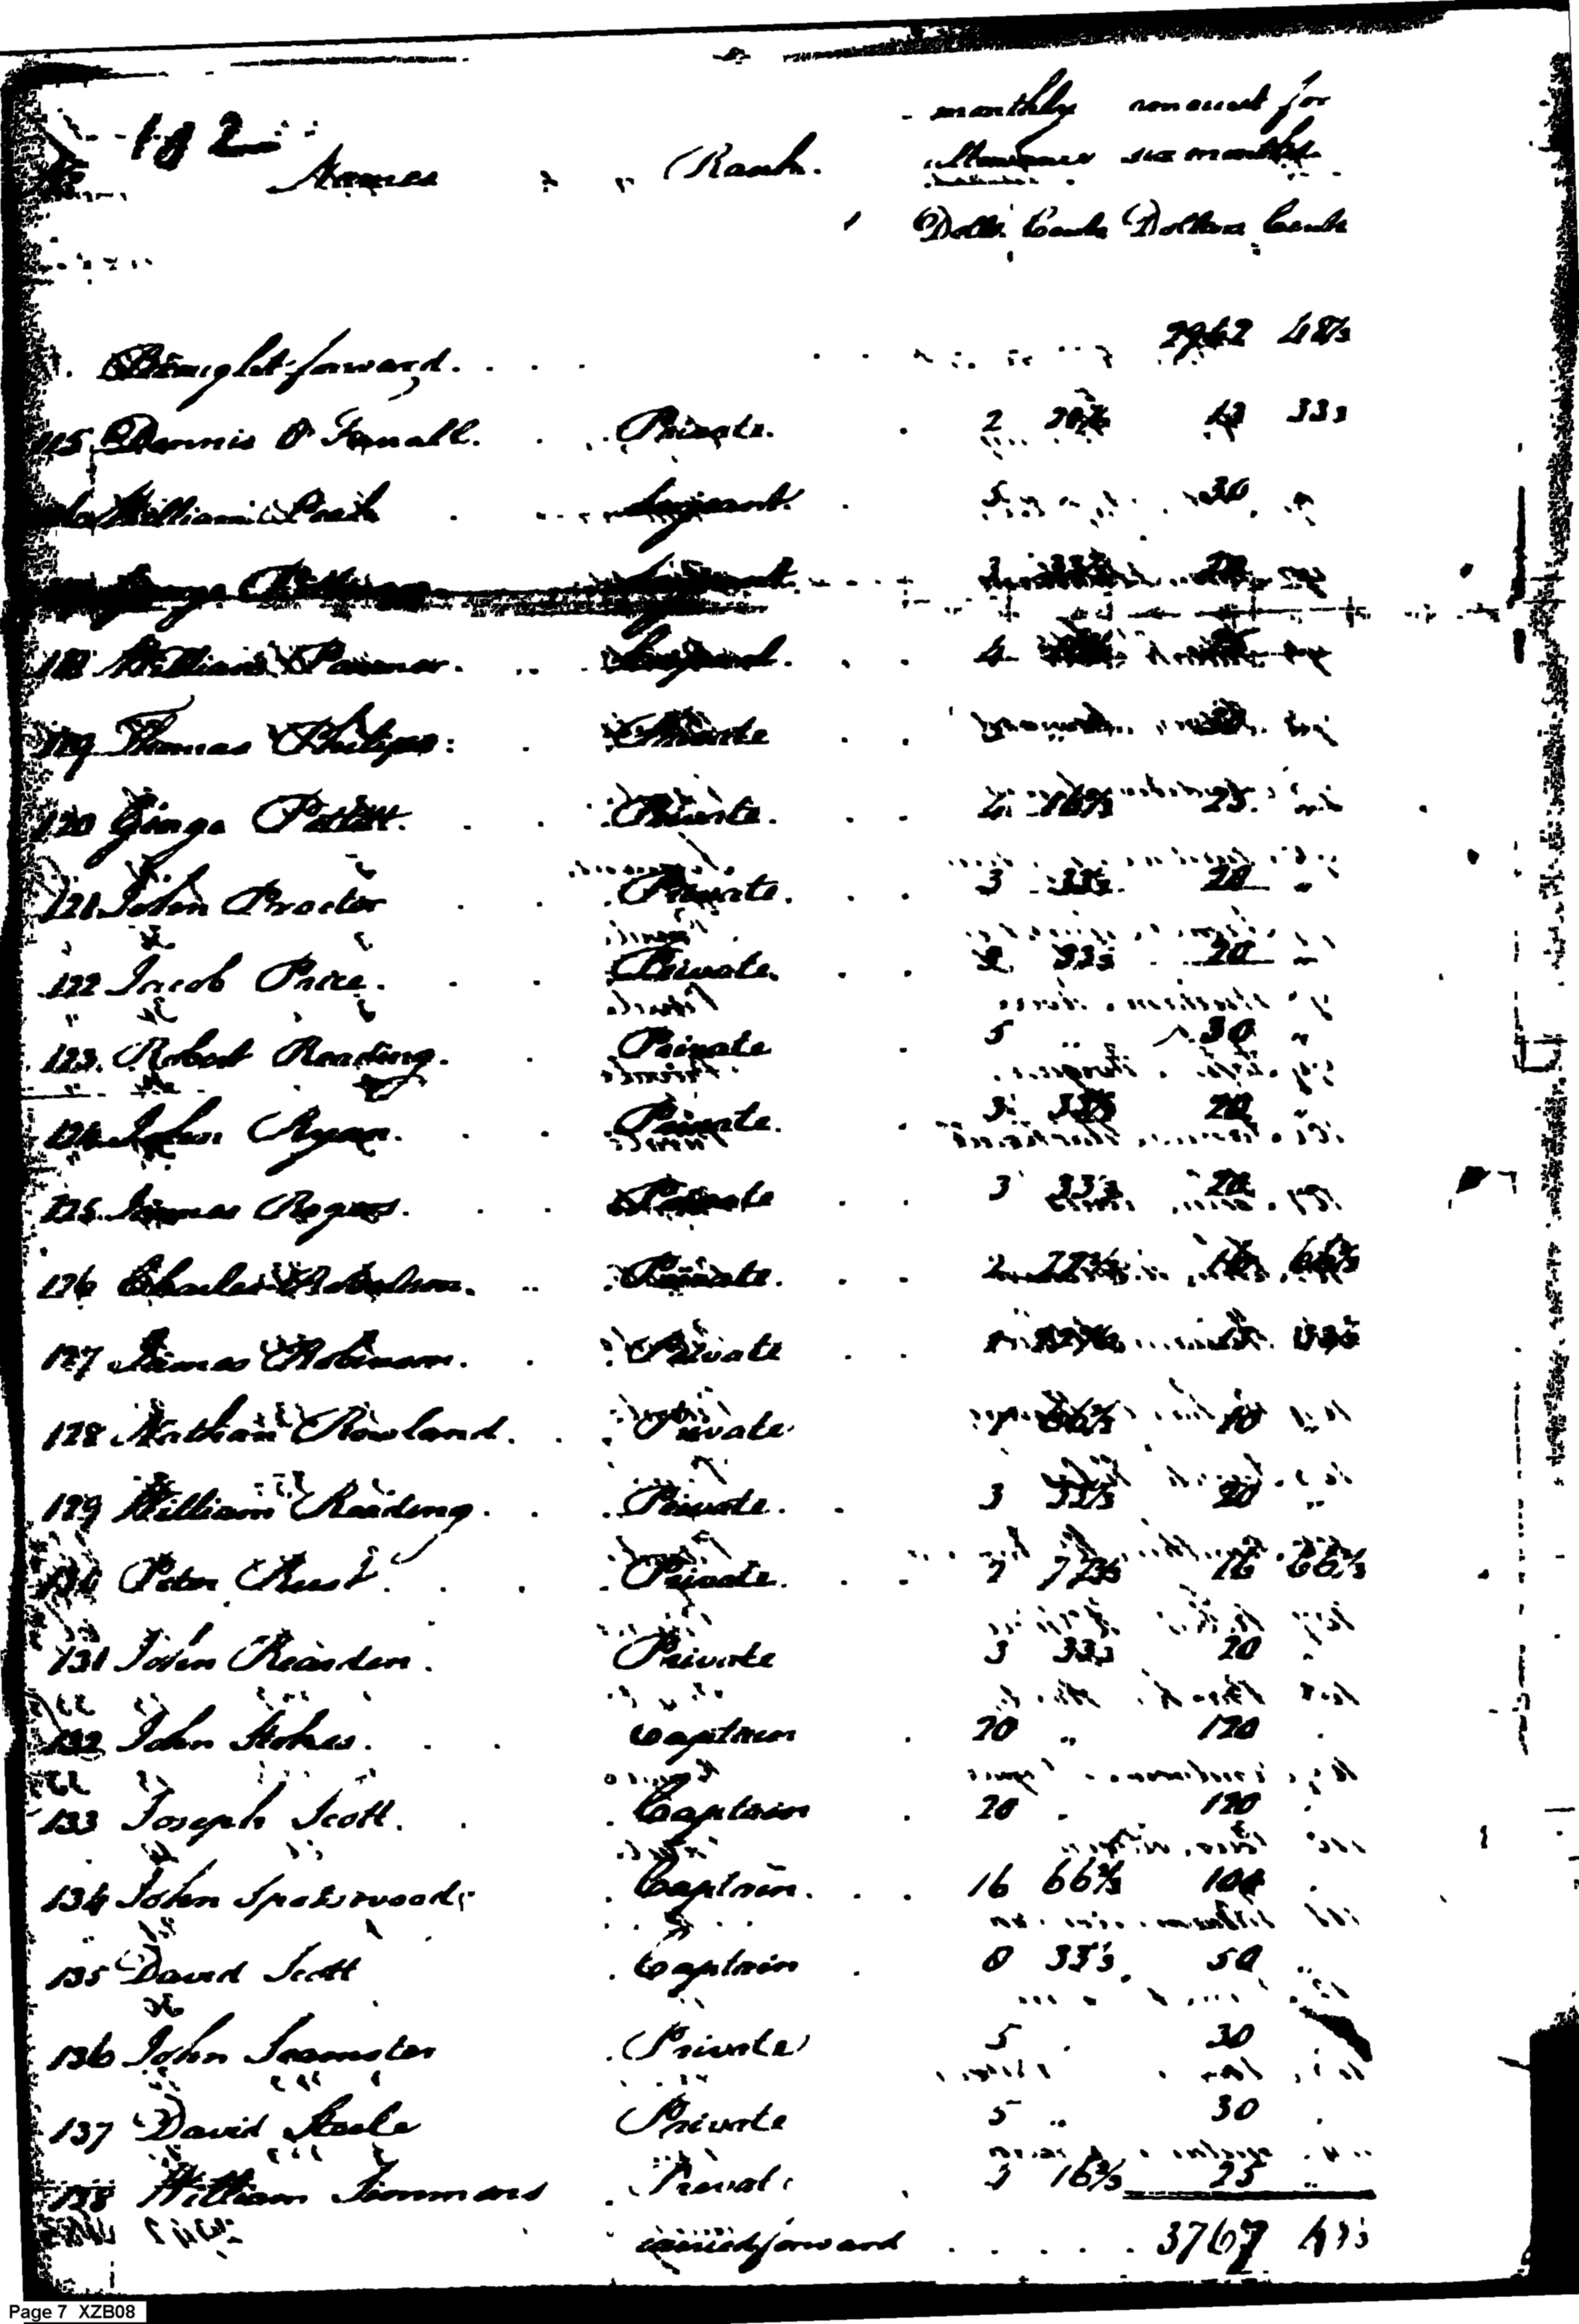 182
monthly amount for
Names " Rank. allowance six months
Dolls. Cents Dollars Cents
Brought forward. 2962 48⅓
115 Dennis O Farrall. Private. 2 13 33⅓
William Private Serjeant. 5 30 "
George Serjeant. 3 33⅓ 20
118 William Serjeant. 4
119 Thomas Philips: Private 30
120 George Private. 4 16⅔ 25
121 John Proctor Private. 3 33⅓ 20 "
122 Jacob Price. Private. 3 33⅓ 20 "
123. Robert Reading. Private 5 " 30 "
124 John Ryan. Private. 3 33⅓ 20 "
125. James Rogers. Private 3 33⅓ 20
126 Charles Private. 2 77⅔ 16 66⅔
127 James Robinson. Private
128 Nathan Rowland. Private 1 66⅔ 10
129 William Reading. Private. 3 33⅓ 20 "
130 Peter Rust. Private. 2 77⅔ 16 66⅔
131 John Rearden. Private 3 33⅓ 20
132 John Stokes. Captain 20 " 120
133 Joseph Scott. Captain 20 120
134 John Spotswood; Captain. 16 66⅔ 100
135 David Scott Captain 8 33⅓ 50 "
136 John Seamster Private 5 30
137 David Steele Private 5 " 30
138 William Simmons Privat 4 16⅔ 25 "
carried forward 3767
Page 7 XZB08